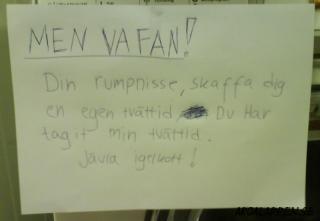 MEN VAFAN!
Din rumpnisse, skaffa dig
en egen tvättid Du Har
tagit min tvättid.
Jävla igelkott!